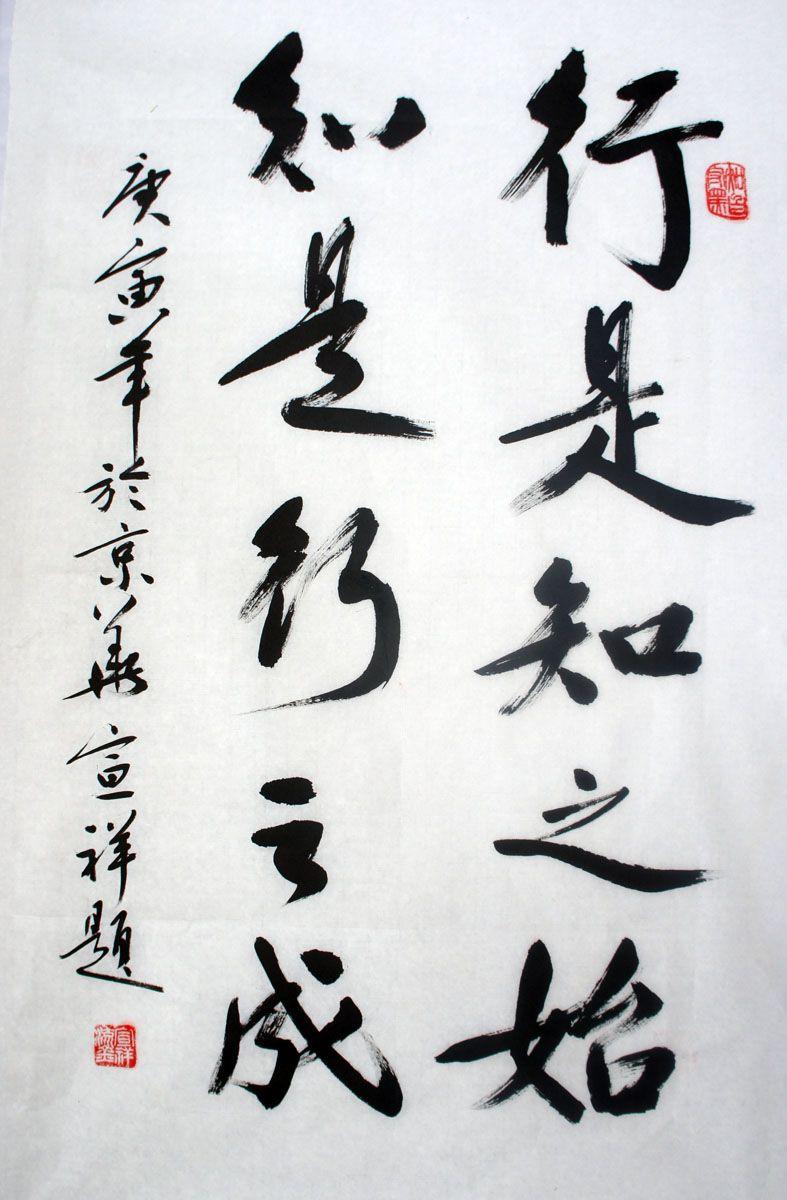 行是知之始
知是行之成
庚寅年於京華宣祥題